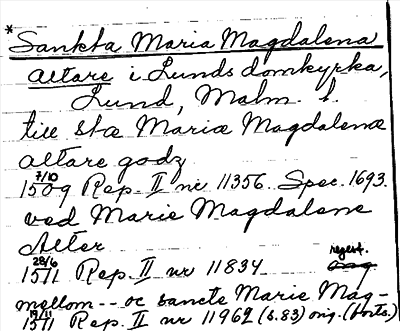 *Sankta Maria Magdalena
altare i Lunds domkyrka,
Lund, Malm. l.
till stæ Mariæ Magdalenæ
altare godz
7/10 1509 Rep. II nr 11356. Spec. 1693.
ved Marie Magdalene
Alter
28/6 1511 Rep. II nr 11834 regest.
mellom -- oc sancte Marie Mag-
19/11 1511 Rep. II nr 11962 (s. 83) orig. (forts.)